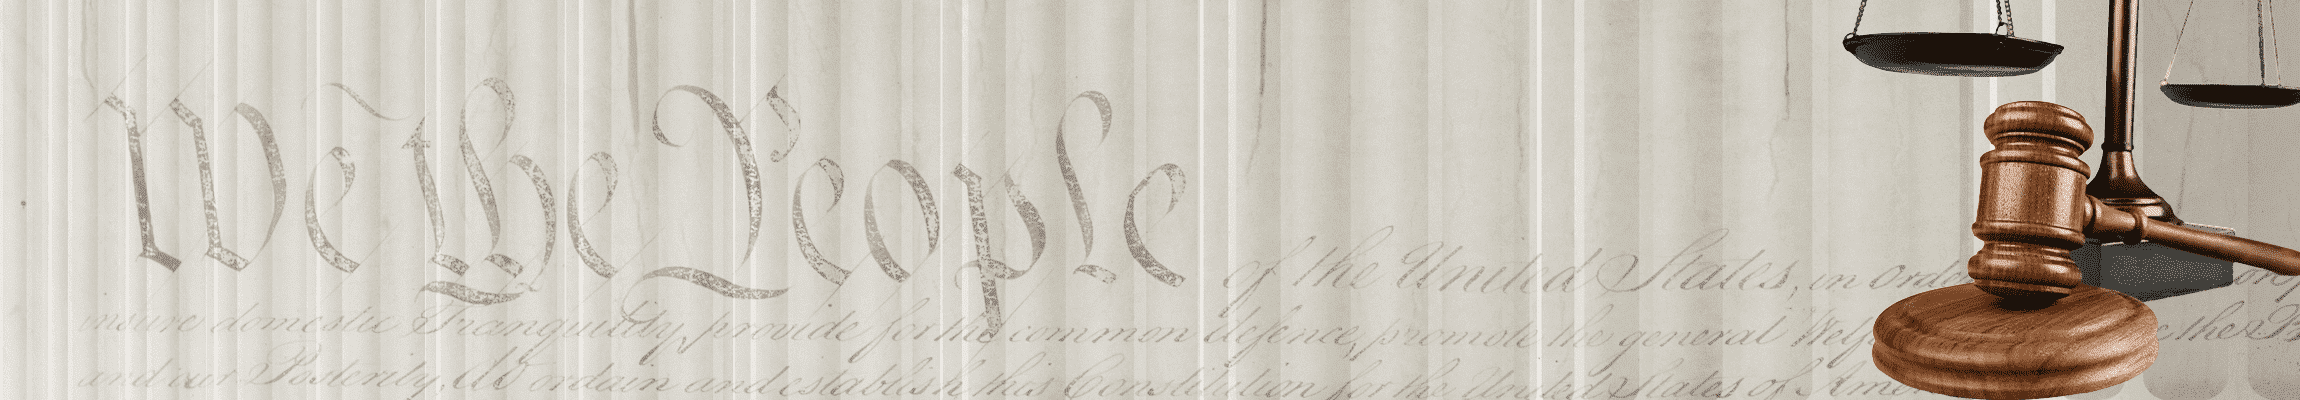 We the People of the United States, in Orde
insure domestic Tranquility, provide for the common defence, promote the general Welf the B
and our Posterity, do ordain and establish this Constitution for the United States of Ame